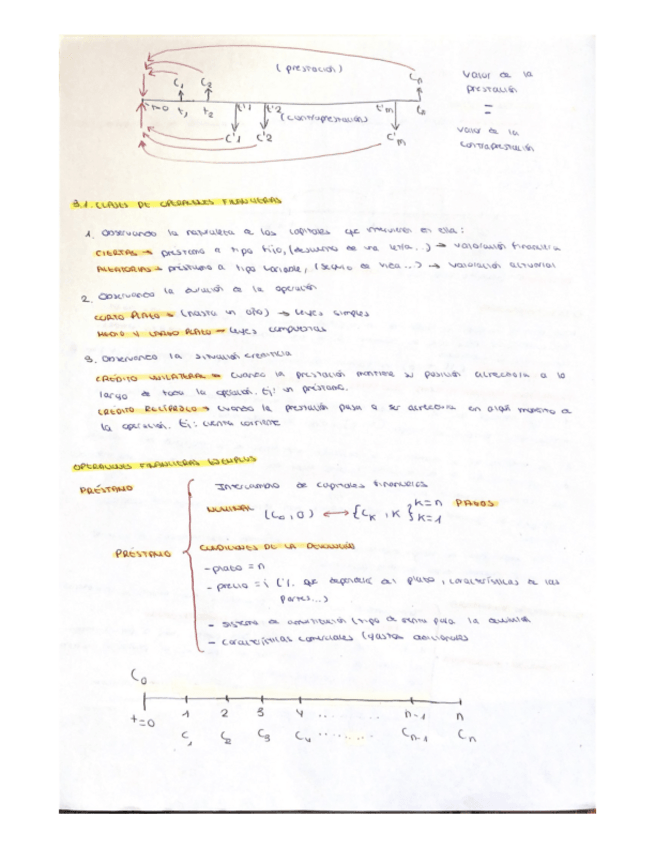 (prestación)
C1 C2 Cn
t=0 t1 t2 t'1 t'2 t'm tn
(contraprestación)
C'1 C'2 C'm
valor de la
prestación
=
valor de la
contraprestación
3.1. CLASES DE OPERACIONES FINANCIERAS
1. Observando la naturaleza de los capitales que intervienen en ella:
CIERTAS → préstamo a tipo fijo, (descuento de una letra...) → valoración financiera
ALEATORIAS → préstamo a tipo variable, (seguro de vida...) → valoración actuarial
2. Observando la duración de la operación
CORTO PLAZO → (hasta un año) → Leyes simples
MEDIO Y LARGO PLAZO → Leyes compuestas
3. Observando la situación crediticia
CRÉDITO UNILATERAL → cuando la prestación mantiene su posición acreedora a lo
largo de toda la operación. Ej: un préstamo.
CRÉDITO RECÍPROCO → cuando la prestación pasa a ser acreedora en algún momento de
la operación. Ej: cuenta corriente
OPERACIONES FINANCIERAS EJEMPLOS
PRÉSTAMO
Intercambio de capitales financieros
NOMINAL (C0, 0) ↔ {CK, K}K=1 K=n PAGOS
PRÉSTAMO
CONDICIONES DE LA DEVOLUCIÓN
- plazo = n
- precio = i (%. que dependerá del plazo, características de las
partes...)
- sistema de amortización (tipo de renta para la
- características comerciales (gastos adicionales
C0
t=0 1 2 3 4 ... ... n-1 n
C1 C2 C3 C4 ...... Cn-1 Cn